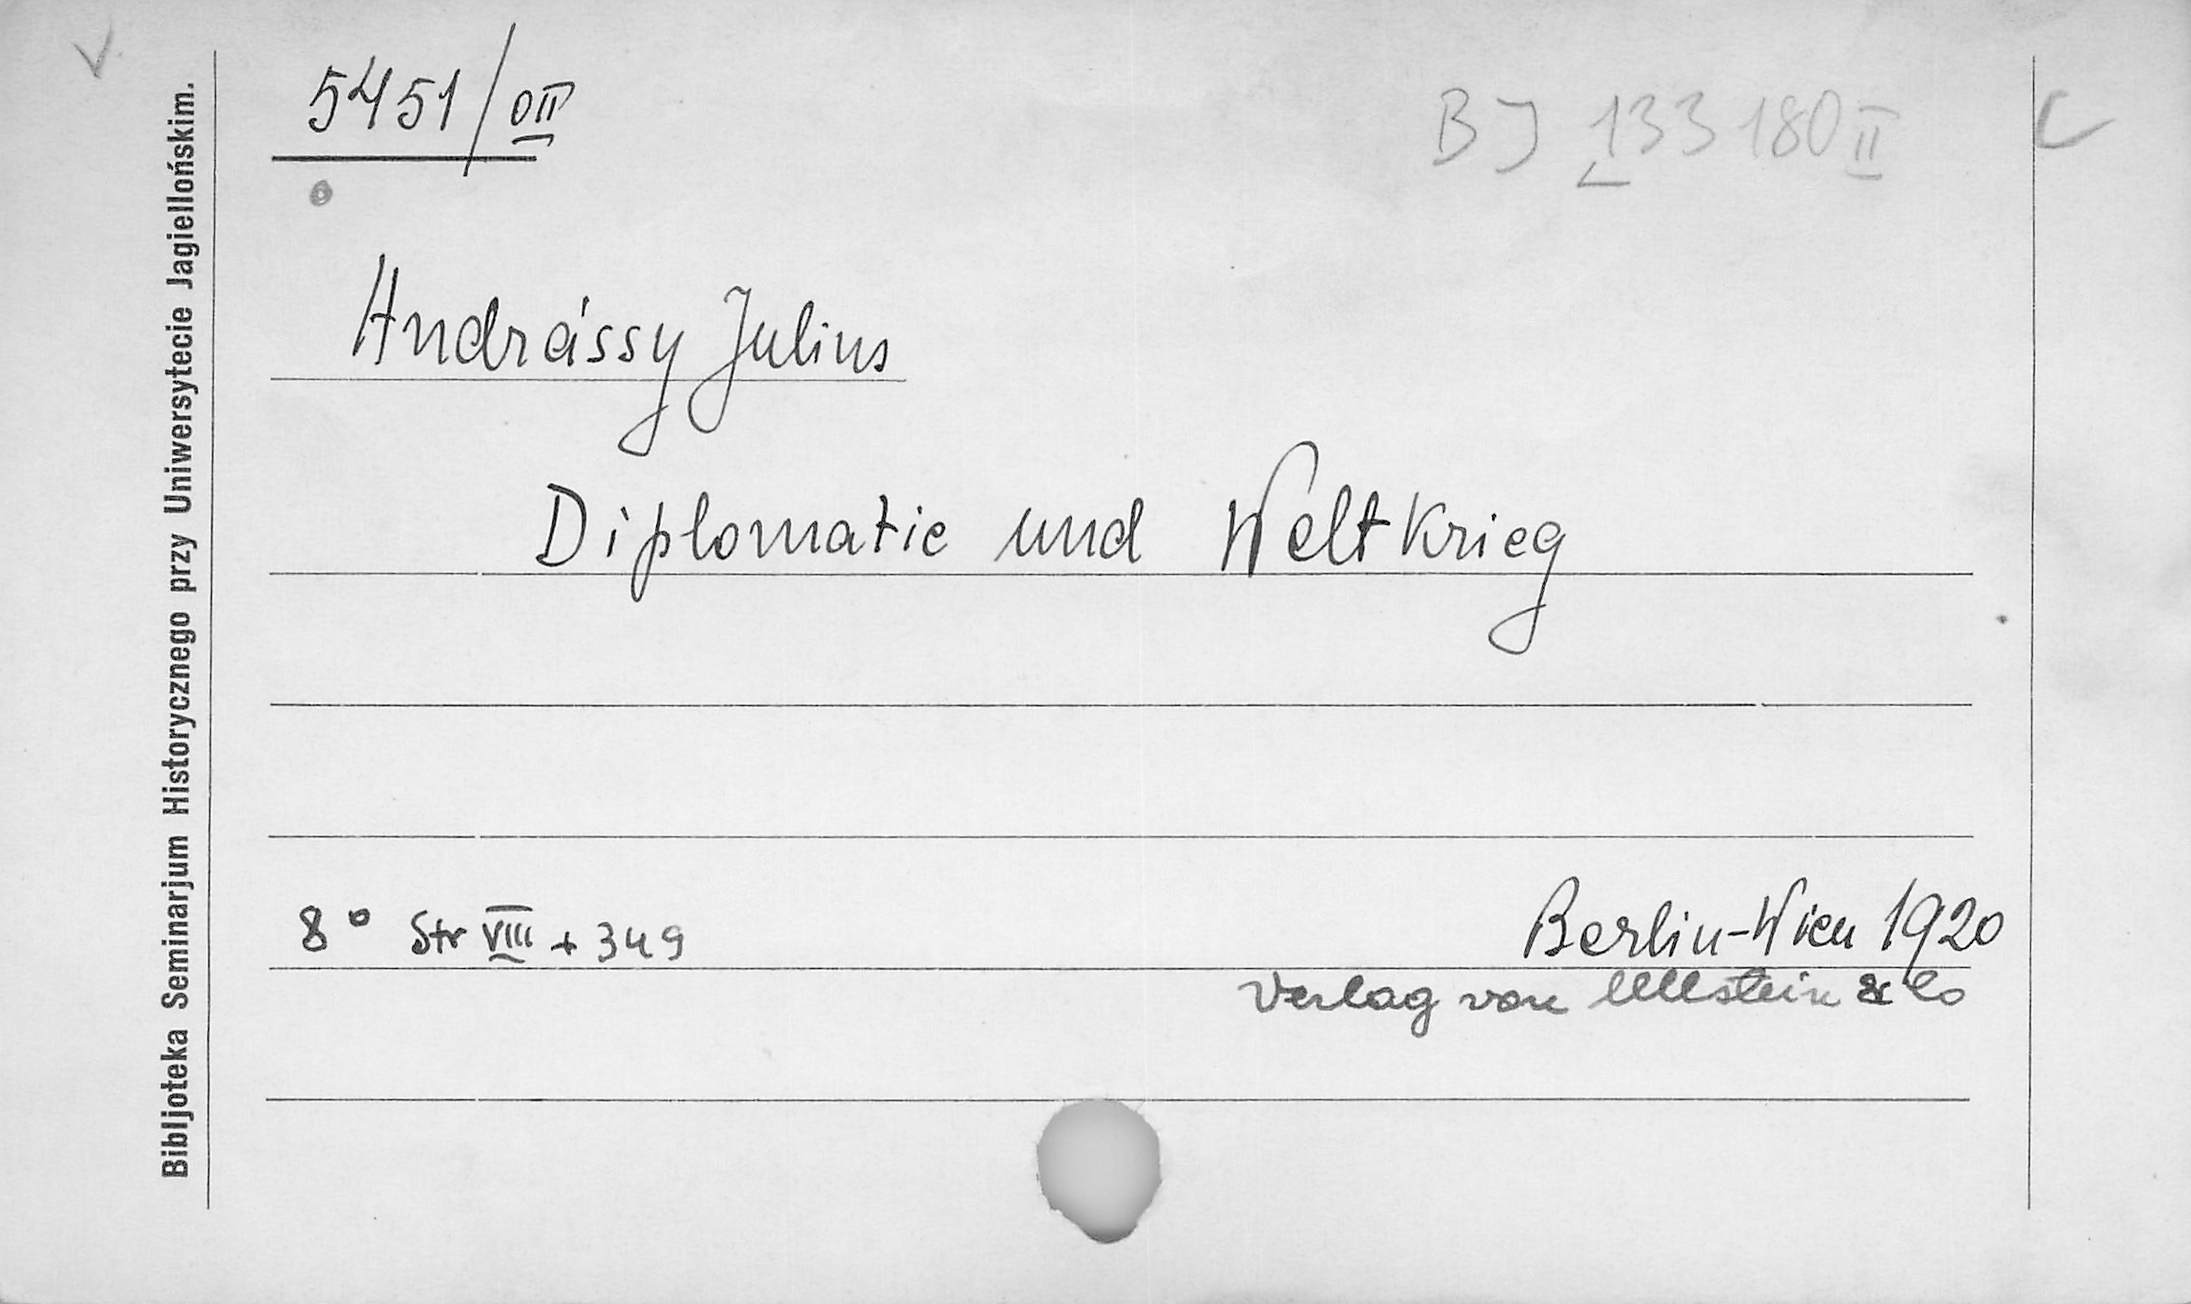 5451/0II
BJ 133180 II
Andrássy Julius
Diplomatie und Weltkrieg
8° Str VIII + 349
Berlin-Wien 1920
Verlag von Ullstein & Co
Bibljoteka Seminarjum Historycznego przy Uniwersytecie Jagiellońskim.